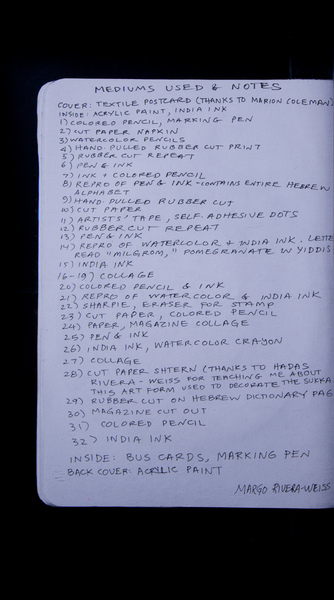 MEDIUMS USED & NOTES
COVER: TEXTILE POSTCARD (THANKS TO MARION COLEMAN)
INSIDE: ACRYLIC PAINT, INDIA INK
1) COLORED PENCIL, MARKING PEN
2) CUT PAPER NAPKIN
3) WATERCOLOR PENCILS
4) HAND-PULLED RUBBER CUT PRINT
5) RUBBER CUT REPEAT
6) PEN & INK
7) INK + COLORED PENCIL
8) REPRO OF PEN & INK - CONTAINS ENTIRE HEBREW
ALPHABET
9) HAND-PULLED RUBBER CUT
10) CUT PAPER
11) ARTISTS' TAPE, SELF-ADHESIVE DOTS
12) RUBBER CUT REPEAT
13) PEN & INK
14) REPRO OF WATERCOLOR + INDIA INK. LETTE
READ "MILGROM," POMEGRANATE IN YIDDIS
15) INDIA INK
16-19) COLLAGE
20) COLORED PENCIL & INK
21) REPRO OF WATERCOLOR & INDIA INK
22) SHARPIE, ERASER FOR STAMP
23) CUT PAPER, COLORED PENCIL
24) PAPER, MAGAZINE COLLAGE
25) PEN & INK
26) INDIA INK, WATERCOLOR CRAYON
27) COLLAGE
28) CUT PAPER SHTERN (THANKS TO HADAS
RIVERA-WEISS FOR TEACHING ME ABOUT
THIS ART FORM USED TO DECORATE THE SUKKA
29) RUBBER CUT ON HEBREW DICTIONARY PAG
30) MAGAZINE CUT OUT
31) COLORED PENCIL
32) INDIA INK
INSIDE: BUS CARDS, MARKING PEN
BACK COVER: ACRYLIC PAINT
MARGO RIVERA-WEISS